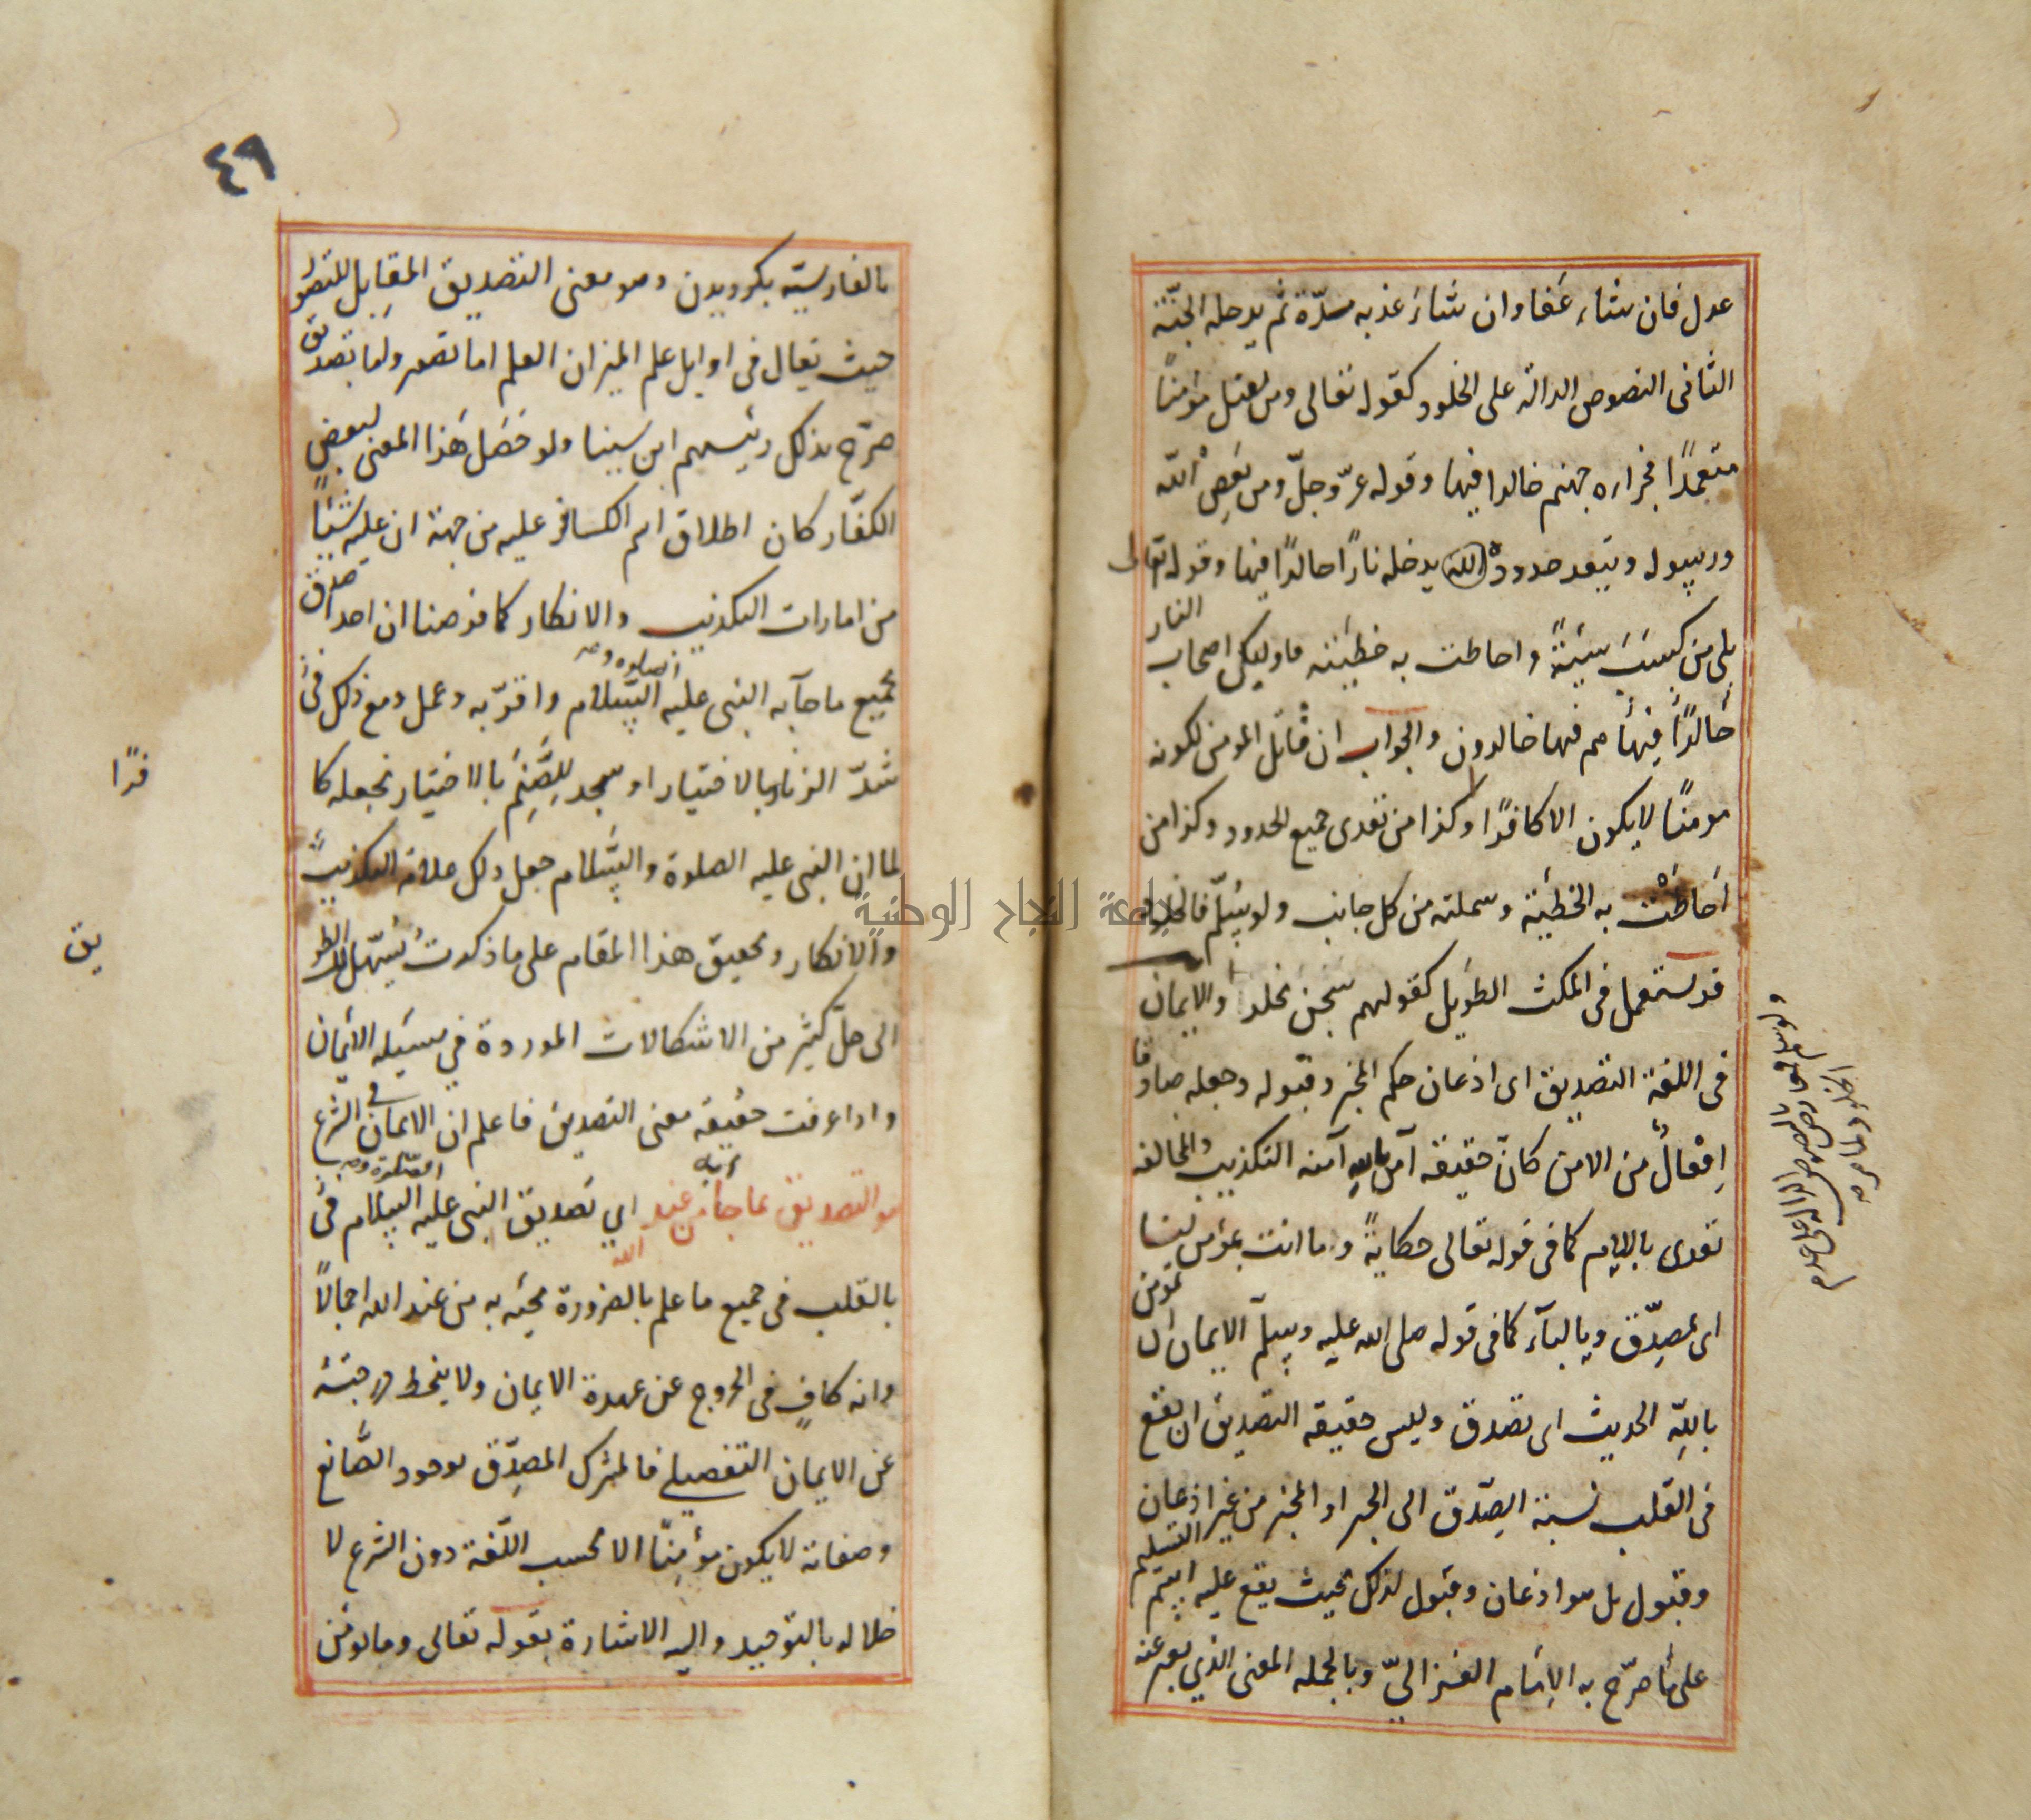 عدل فان شاء عفا وان شاء عذبه مدّة ثم يدخله الجنّة
الثانى النصوص الدالة على الخلود كقوله تعالى ومن يقتل مؤمنًا
متعمدًا فجزاوه جهنم خالدا فيها وقوله عزّ وجلّ ومن يعصِ الله
ورسوله ويتعد حدوده الله يدخله نارًا خالدًا فيها وقوله تعالى
بلى من كسب سيئةً واحاطت به خطيئته فاوليك اصحاب النار
خالدًا فيها هم فيها خالدون والجواب ان قاتل المومن لكونه
مومنًا لا يكون الا كافرًا وكذا من تعدى جميع الحدود وكذا من
احاطت به الخطيئة وشملته من كل جانب ولو سُلّم فالخلود
قد يستعمل فى المكث الطويل كقولهم سجن مخلد والايمان
فى اللغة التصديق اى اذعان حكم المخبر وقبوله وجعله صادقا
اِفعالٌ من الامن كانّ حقيقة آمن به آمنه التكذيب والمخالفه
تعدى باللام كما فى قوله تعالى حكايةً وما انت بمؤمن لنا
اى بمصدّق وبالبآء كما فى قوله صلى الله عليه وسلّم الايمان ان تومن
باللّه الحديث اى تصدق وليس حقيقه التصديق ان تقع
فى القلب نسبة الصّدق الى الخبر او المخبر من غير اذعان
وقبول بل هو اذعان وقبول لذلك بحيث يقع عليه اسم التسليم
على ما صرّح به الامام الغزاليّ وبالجمله المعنى الذي يعبر عنه
٤٩
بالفارسيّه بكرويدن وهو معنى التصديق المقابل للتصور
حيث يقال فى اوايل علم الميزان العلم اما تصور واما تصديق
صرّح بذلك رئيسهم ابن سينا ولو حصل هذا المعنى لبعض
الكفّار كان اطلاق اسم الكافر عليه من جهة ان عليه شيئًا
من امارات التكذيب والانكار كما فرضنا ان احدا صدق
بجميع ما جآ به النبى عليه الصلوة والسّلام واقرّ به وعمل ومع ذلك
شدّ الزنار بالاختيار او سجد للصَّنَم بالاختيار نجعله كا
فرًا
لما ان النبى عليه الصلوة والسّلام جعل ذلك علامة التكذيب
والانكار وتحقيق هذا المقام على ما ذكرت يُسهّل لك الطر
يق
الى حلّ كثير من الاشكالات الموردة في مسئله الايمان
واذا عرفت حقيقه معنى التصديق فاعلم ان الايمان فى الشرع
هو التصديق بما جاء به من عند الله اي تصديق النبى عليه الصلوة والسلام
بالقلب فى جميع ما علم بالضرورة مجيئه به من عند الله اجمالًا
وانه كافٍ فى الخروج عن عهدة الايمان ولا ينحط درجته
عن الايمان التفصيلي فالمشرك المصدّق بوجود الصّانع
وصفاته لا يكون مؤمنًا الا بحسب اللّغة دون الشرع لا
خلاله بالتوحيد واليه الاشارة بقوله تعالى وما يومن
جامعة النجاح الوطنية